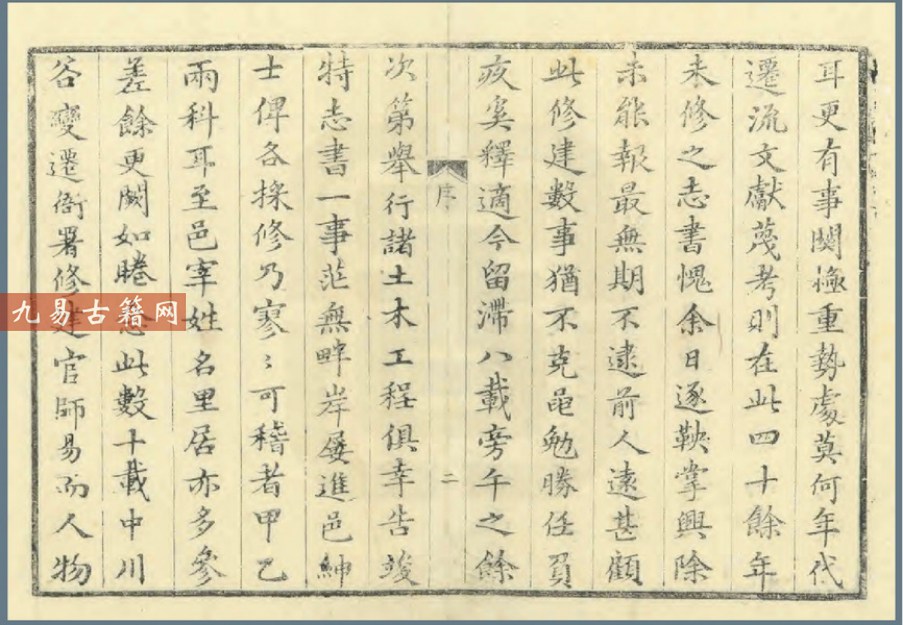 耳更有事關極重勢處莫何年代
遷流文獻蔑考則在此四十餘年
未修之志書愧余日逐鞅掌興除
未能報最無期不逮前人遠甚顧
此修建數事猶不克黽勉勝任負
疚奚釋適今留滯八載旁午之餘
序
二
次第舉行諸土木工程俱幸告竣
特志書一事茫無畔岸屡進邑紳
士俾各採修乃寥〻可稽者甲乙
兩科耳至邑宰姓名里居亦多參
差餘更闕如睠念此數十載中川
谷變遷衙署修建官師易而人物
九易古籍网